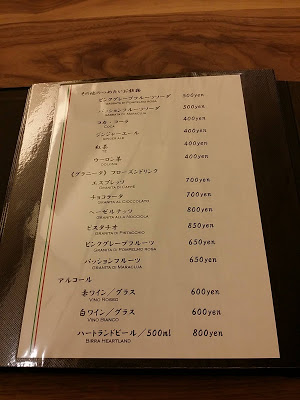 その他のつめたいお飲物
ピンクグレープフルーツソーダ 500yen
GRANITA DI POMPELMO ROSA
パッションフルーツソーダ 500yen
GRANITA DI MARACUJA
コカ・コーラ 400yen
COCA
ジンジャーエール 400yen
GINGER ALE
紅茶 400yen
ウーロン茶 400yen
OOLONG
《グラニータ》フローズンドリンク
エスプレッソ 700yen
GRANITA DI CAFFE
チョコラータ 700yen
GRANITA AL CIOCCOLATO
ヘーゼルナッツ 800yen
GRANITA ALLA NOCCIOLA
ピスタチオ 850yen
GRANITA DI PISTACCHIO
ピンクグレープフルーツ 650yen
GRANITA DI POMPELMO ROSA
パッションフルーツ 650yen
GRANITA DI MARACUJA
アルコール
赤ワイン／グラス 600yen
VINO ROSSO
白ワイン／グラス 600yen
VINO BIANCO
ハートランドビール／500ml 800yen
BIRRA HEARTLAND